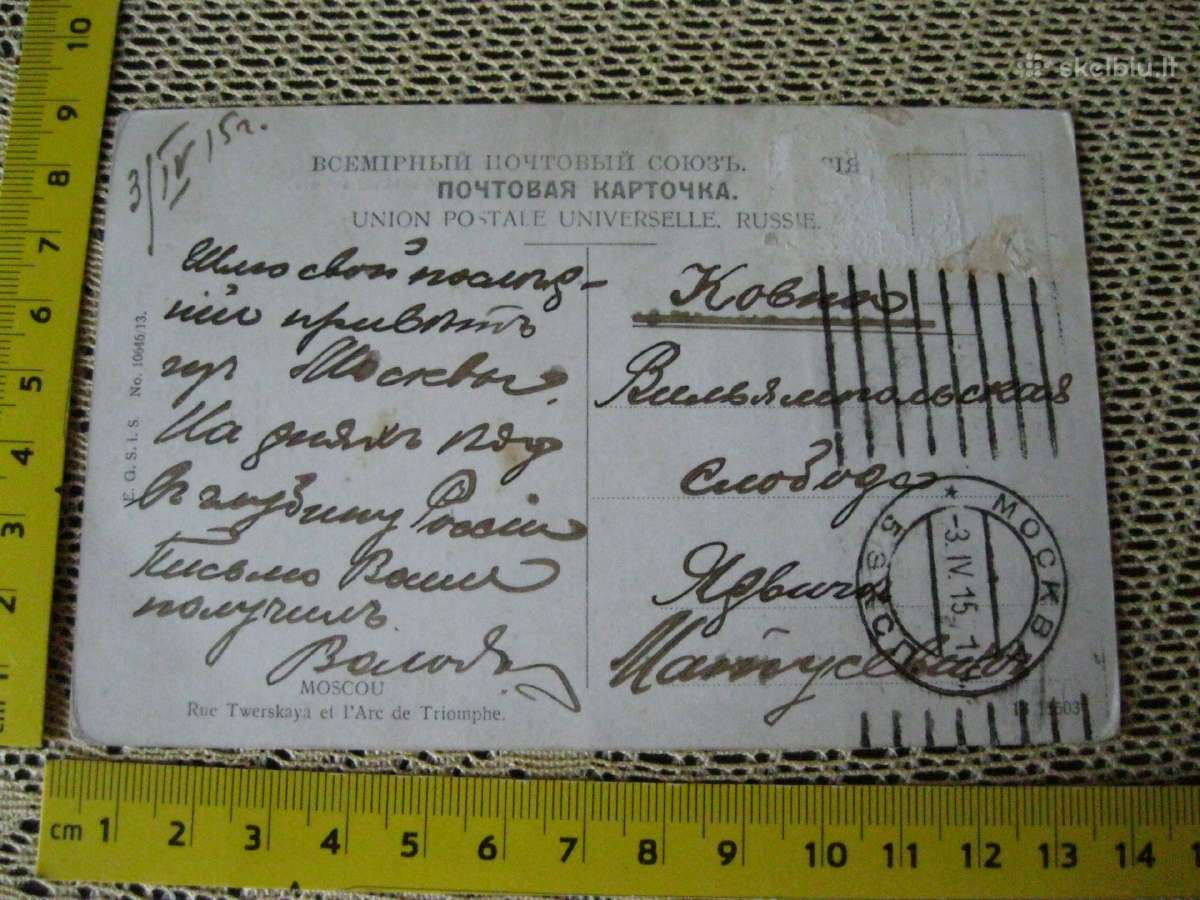 skelbiu.lt
3/IV 15г.
ВСЕМІРНЫЙ ПОЧТОВЫЙ СОЮЗЪ. СІЯ
ПОЧТОВАЯ КАРТОЧКА.
UNION POSTALE UNIVERSELLE. RUSSIE.
Шлю свой послѣд-
ній привѣтъ
изъ Москвы.
На дняхъ
въ глубину Россіи
Письмо Ваше
получилъ.
Володя
MOSCOU
Rue Twerskaya et l'Arc de Triomphe.
E. G. S. i. S. No. 10646/13.
Ковно
Вильямпольская
слобода
Ядвигѣ
Матусевичъ
МОСКВА
5 ЭКСП.
-3.IV.15
cm 1 2 3 4 5 6 7 8 9 10 11 12 13 14
cm 1 2 3 4 5 6 7 8 9 10